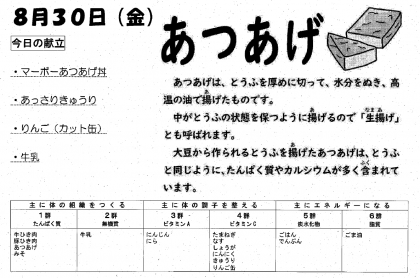 8月30日（金）
今日の献立
・マーボーあつあげ丼
・あっさりきゅうり
・りんご（カット缶）
・牛乳
あつあげ
あつあげは、とうふを厚めに切って、水分をぬき、高
温の油で揚げたものです。
中がとうふの状態を保つように揚げるので「生揚げ」
とも呼ばれます。
大豆から作られるとうふを揚げたあつあげは、とうふ
と同じように、たんぱく質やカルシウムが多く含まれて
います。
主に体の組織をつくる 主に体の調子を整える 主にエネルギーになる
1群 2群 3群 4群 5群 6群
たんぱく質 無機質 ビタミンA ビタミンC 炭水化物 脂質
牛ひき肉 牛乳 にんじん たまねぎ ごはん ごま油
豚ひき肉 にら なす でんぷん
あつあげ しょうが
みそ にんにく
きゅうり
りんご缶